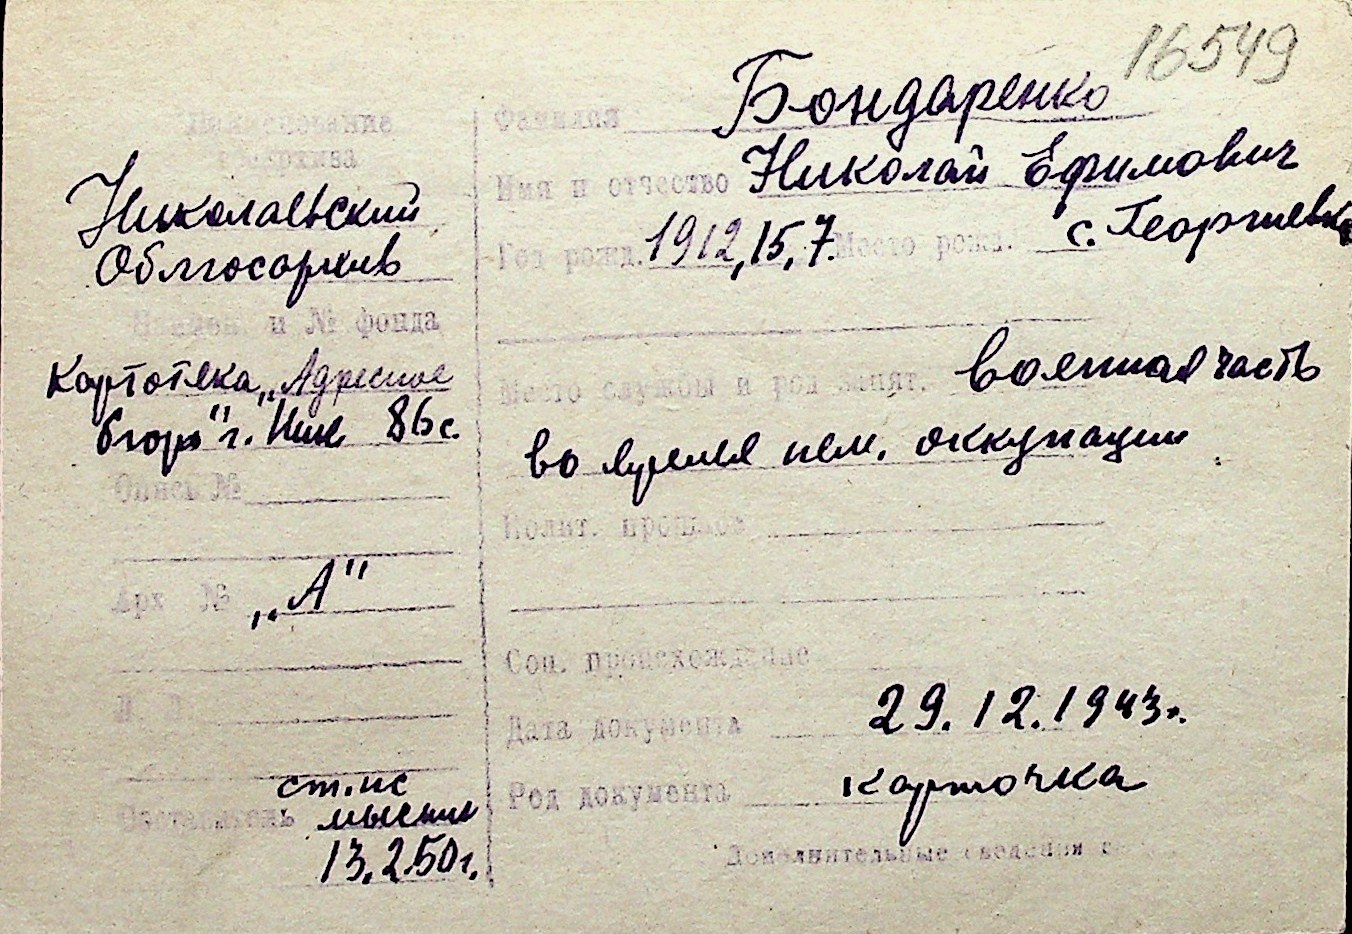 16549
Наименование
госархива
Николаевский
Облгосархив
Наимен. и № фонда
Картотека „Адресное
бюро" г. Ник 86 с.
Опись №
Арх №
„А"
Составитель ст. ис
13.2.50 г.
Фамилия Бондаренко
Имя и отчество Николай Ефимович
Год рожд. 1912, 15, 7. Место рожд. с. Георгиевка
Место службы и род занят. военная часть
во время нем. оккупации
Полит. прошлое
Соц. происхождение
Дата документа 29.12.1943г.
Род документа карточка
Дополнительные сведения